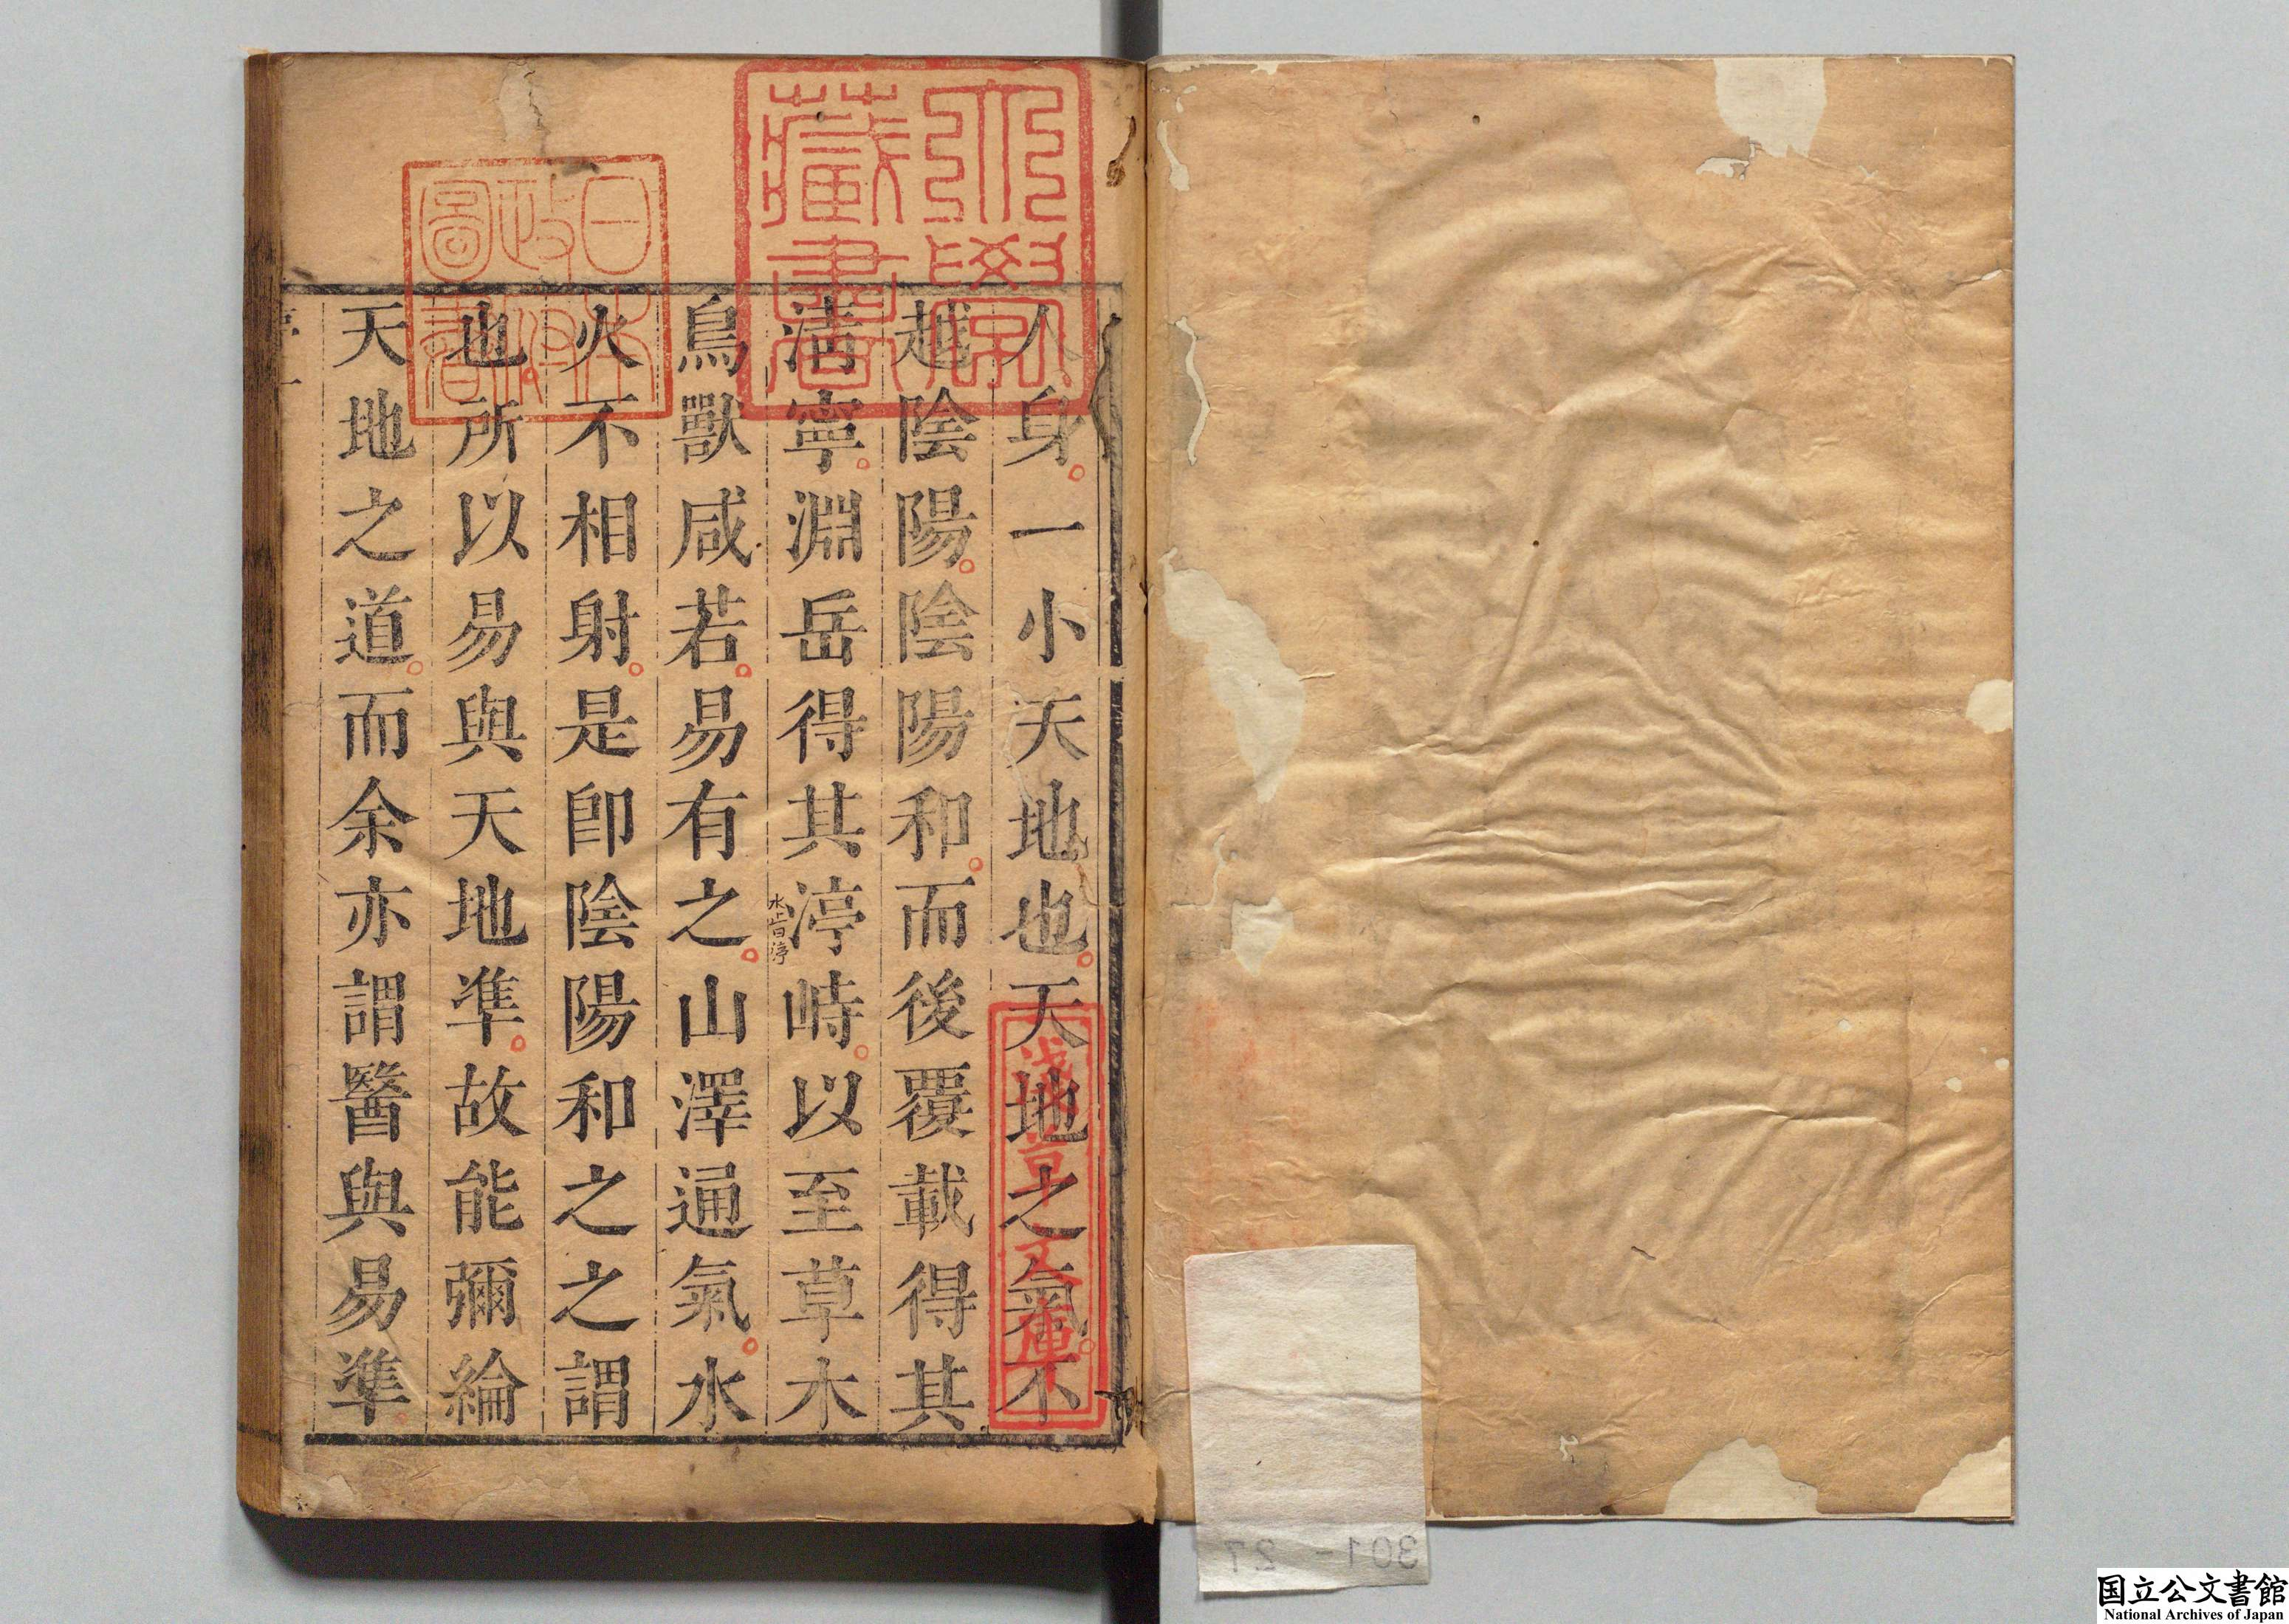 人身一小天地也天地之氣不
越陰陽陰陽和而後覆載得其
淸寧淵岳得其渟峙以至草木
水止曰渟
鳥獸咸若易有之山澤通氣水
火不相射是卽陰陽和之之謂
也所以易與天地準故能彌綸
天地之道而余亦謂醫與易準
藏書
日本政府圖書
淺草文庫
301-27
国立公文書館
National Archives of Japan